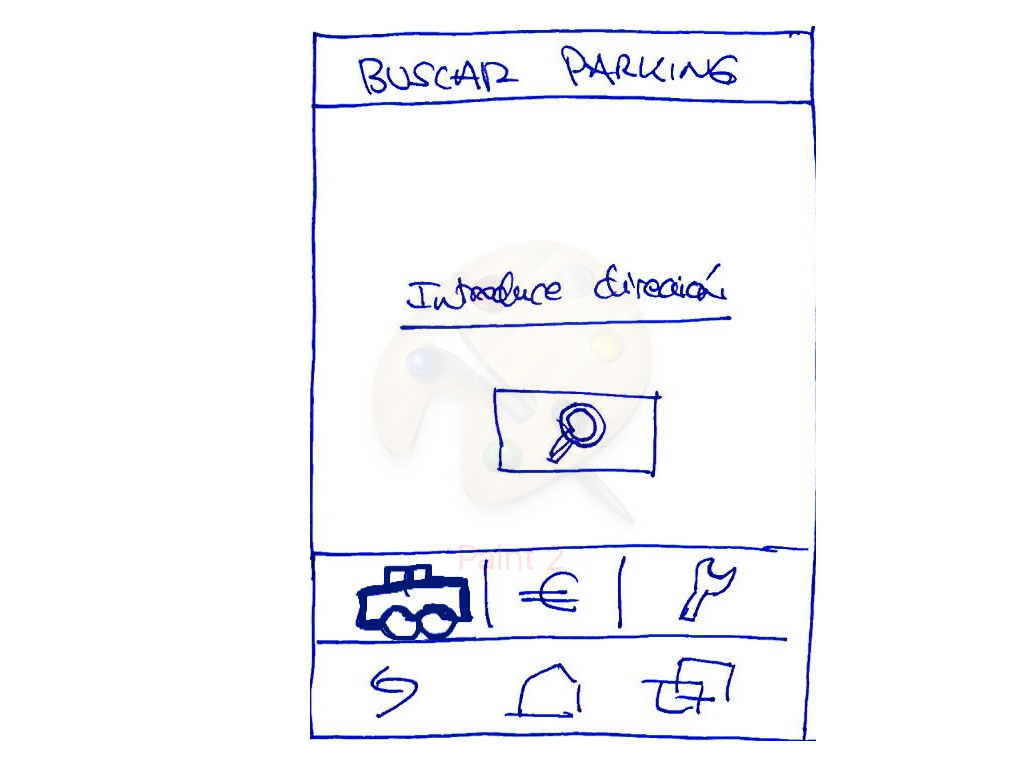 BUSCAR PARKING
Introduce dirección
Paint 2
€